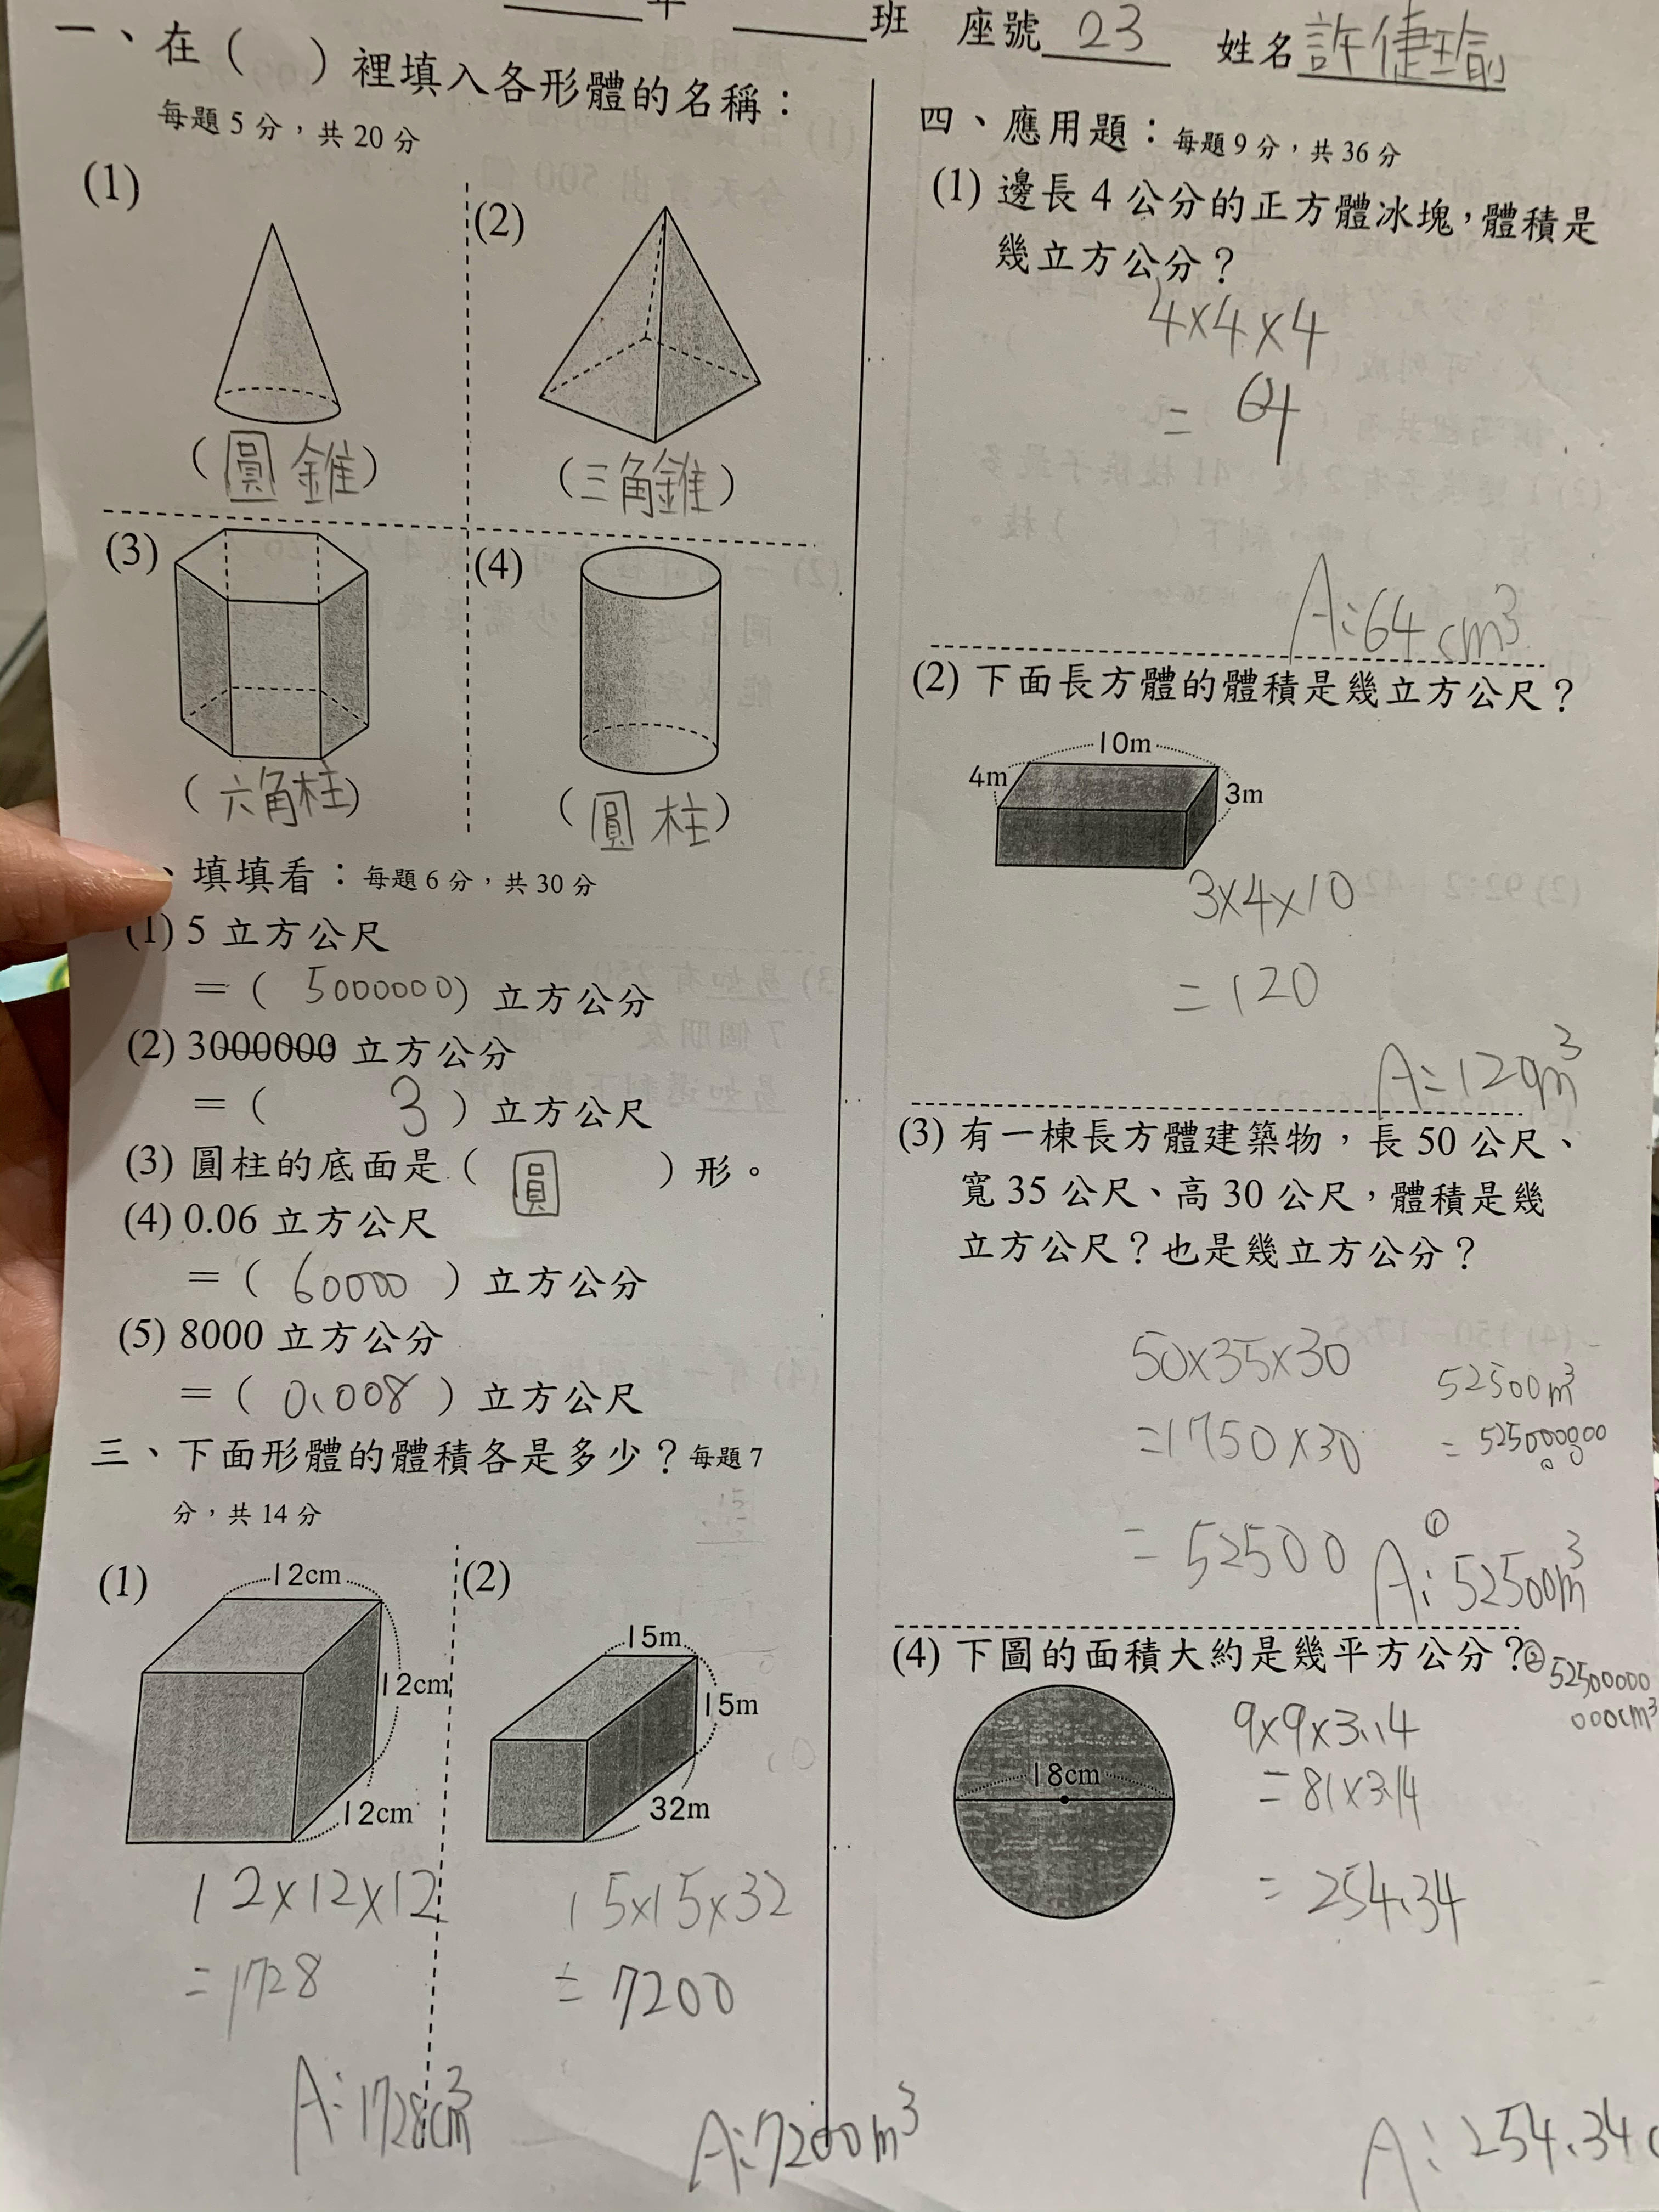 年 班 座號 03 姓名 許倢瑜
一、在( )裡填入各形體的名稱：
每題5分，共20分
(1)
(圓錐)
(2)
(三角錐)
(3)
(六角柱)
(4)
(圓柱)
、填填看：每題6分，共30分
(1) 5 立方公尺
＝( 5000000) 立方公分
(2) 3000000 立方公分
＝( 3 ) 立方公尺
(3) 圓柱的底面是( 圓 )形。
(4) 0.06 立方公尺
＝( 60000 ) 立方公分
(5) 8000 立方公分
＝( 0.008 ) 立方公尺
三、下面形體的體積各是多少？每題7
分，共14分
(1)
12cm
12cm
12cm
12×12×12
=1728
A:1728cm³
(2)
15m
15m
32m
15×15×32
=7200
A:7200m³
四、應用題：每題9分，共36分
(1) 邊長4公分的正方體冰塊，體積是
幾立方公分？
4×4×4
= 64
A:64cm³
(2) 下面長方體的體積是幾立方公尺？
10m
4m
3m
3×4×10
=120
A:120m³
(3) 有一棟長方體建築物，長50公尺、
寬35公尺、高30公尺，體積是幾
立方公尺？也是幾立方公分？
50×35×30
=1750×30
=52500
52500m³
A:①52500m³
②52500000
000cm³
(4) 下圖的面積大約是幾平方公分？
18cm
9×9×3.14
=81×3.14
=254.34
A:254.34c